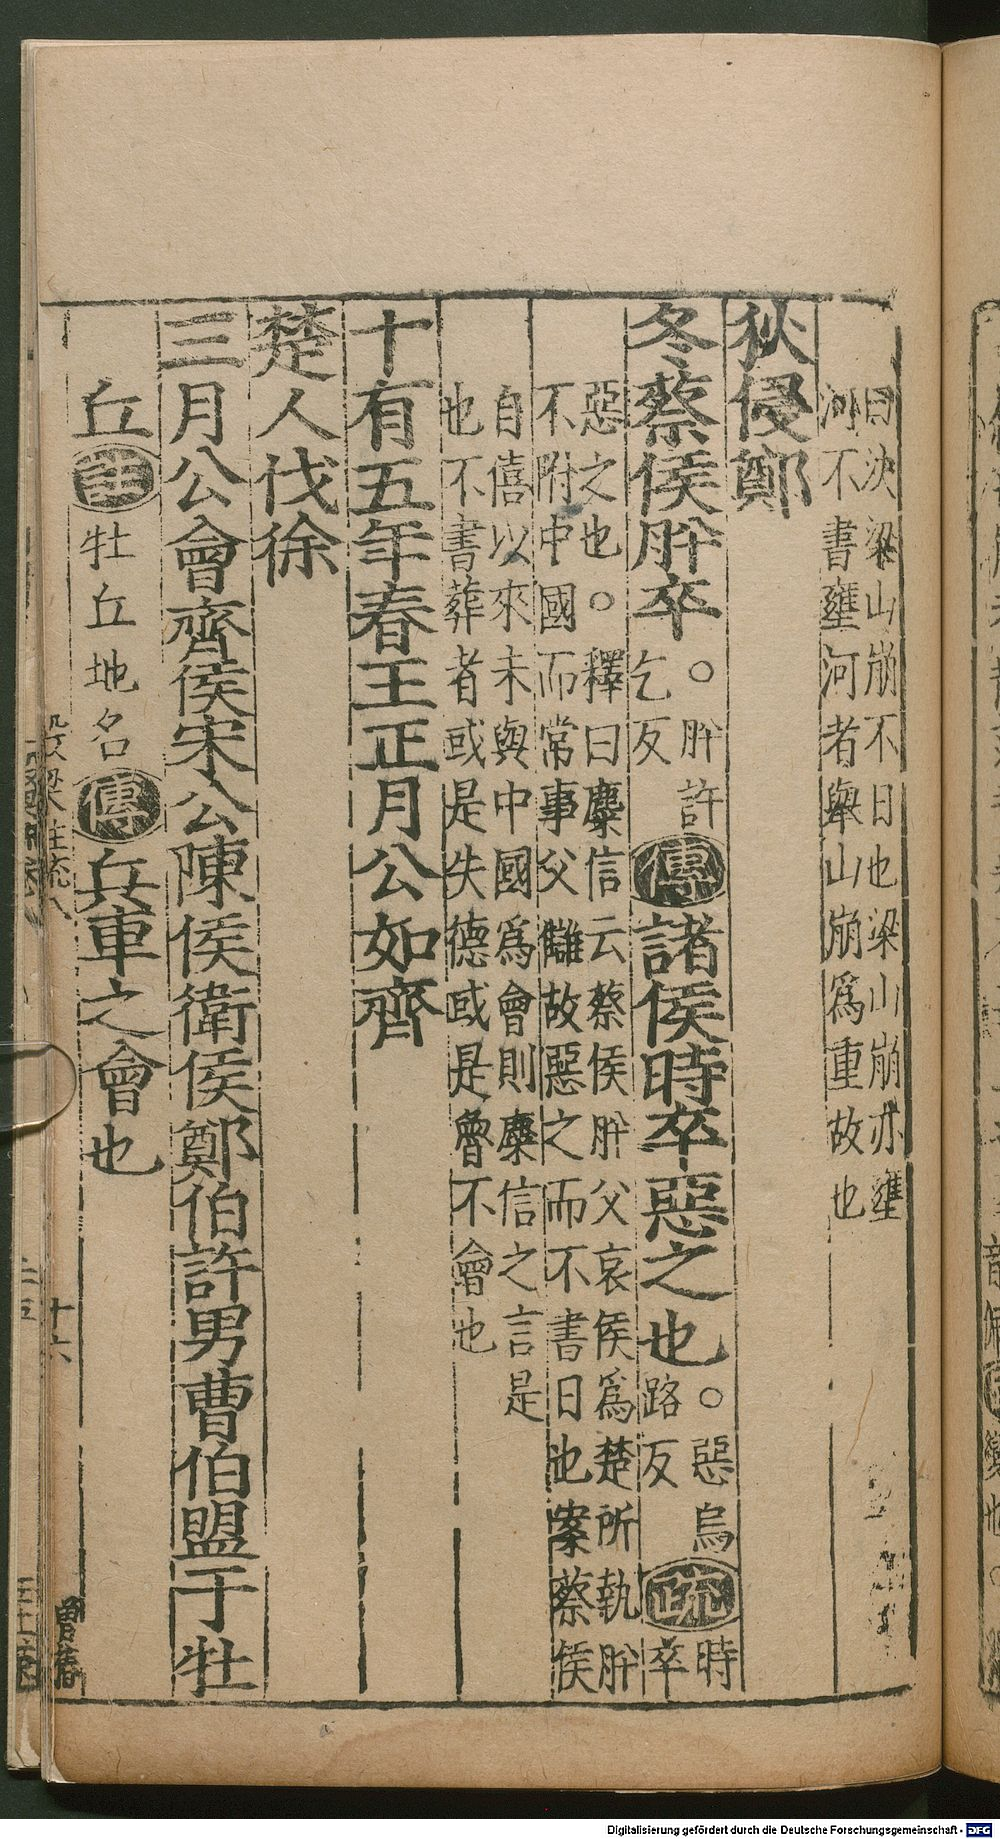 曰決梁山崩不日也梁山崩亦壅
河不書壅河者舉山崩爲重故也
狄侵鄭
冬蔡侯肸卒○肸許乞反傳諸侯時卒惡之也○惡烏路反疏時卒
惡之也○釋曰麋信云蔡侯肸父哀侯爲楚所執肸
不附中國而常事父讎故惡之而不書日也案蔡侯
自僖以來未與中國爲會則麋信之言是
也不書葬者或是失德或是魯不會也
十有五年春王正月公如齊
楚人伐徐
三月公會齊侯宋公陳侯衛侯鄭伯許男曹伯盟于牡
丘註牡丘地名傳兵車之會也
十六
Digitalisierung gefördert durch die Deutsche Forschungsgemeinschaft - DFG